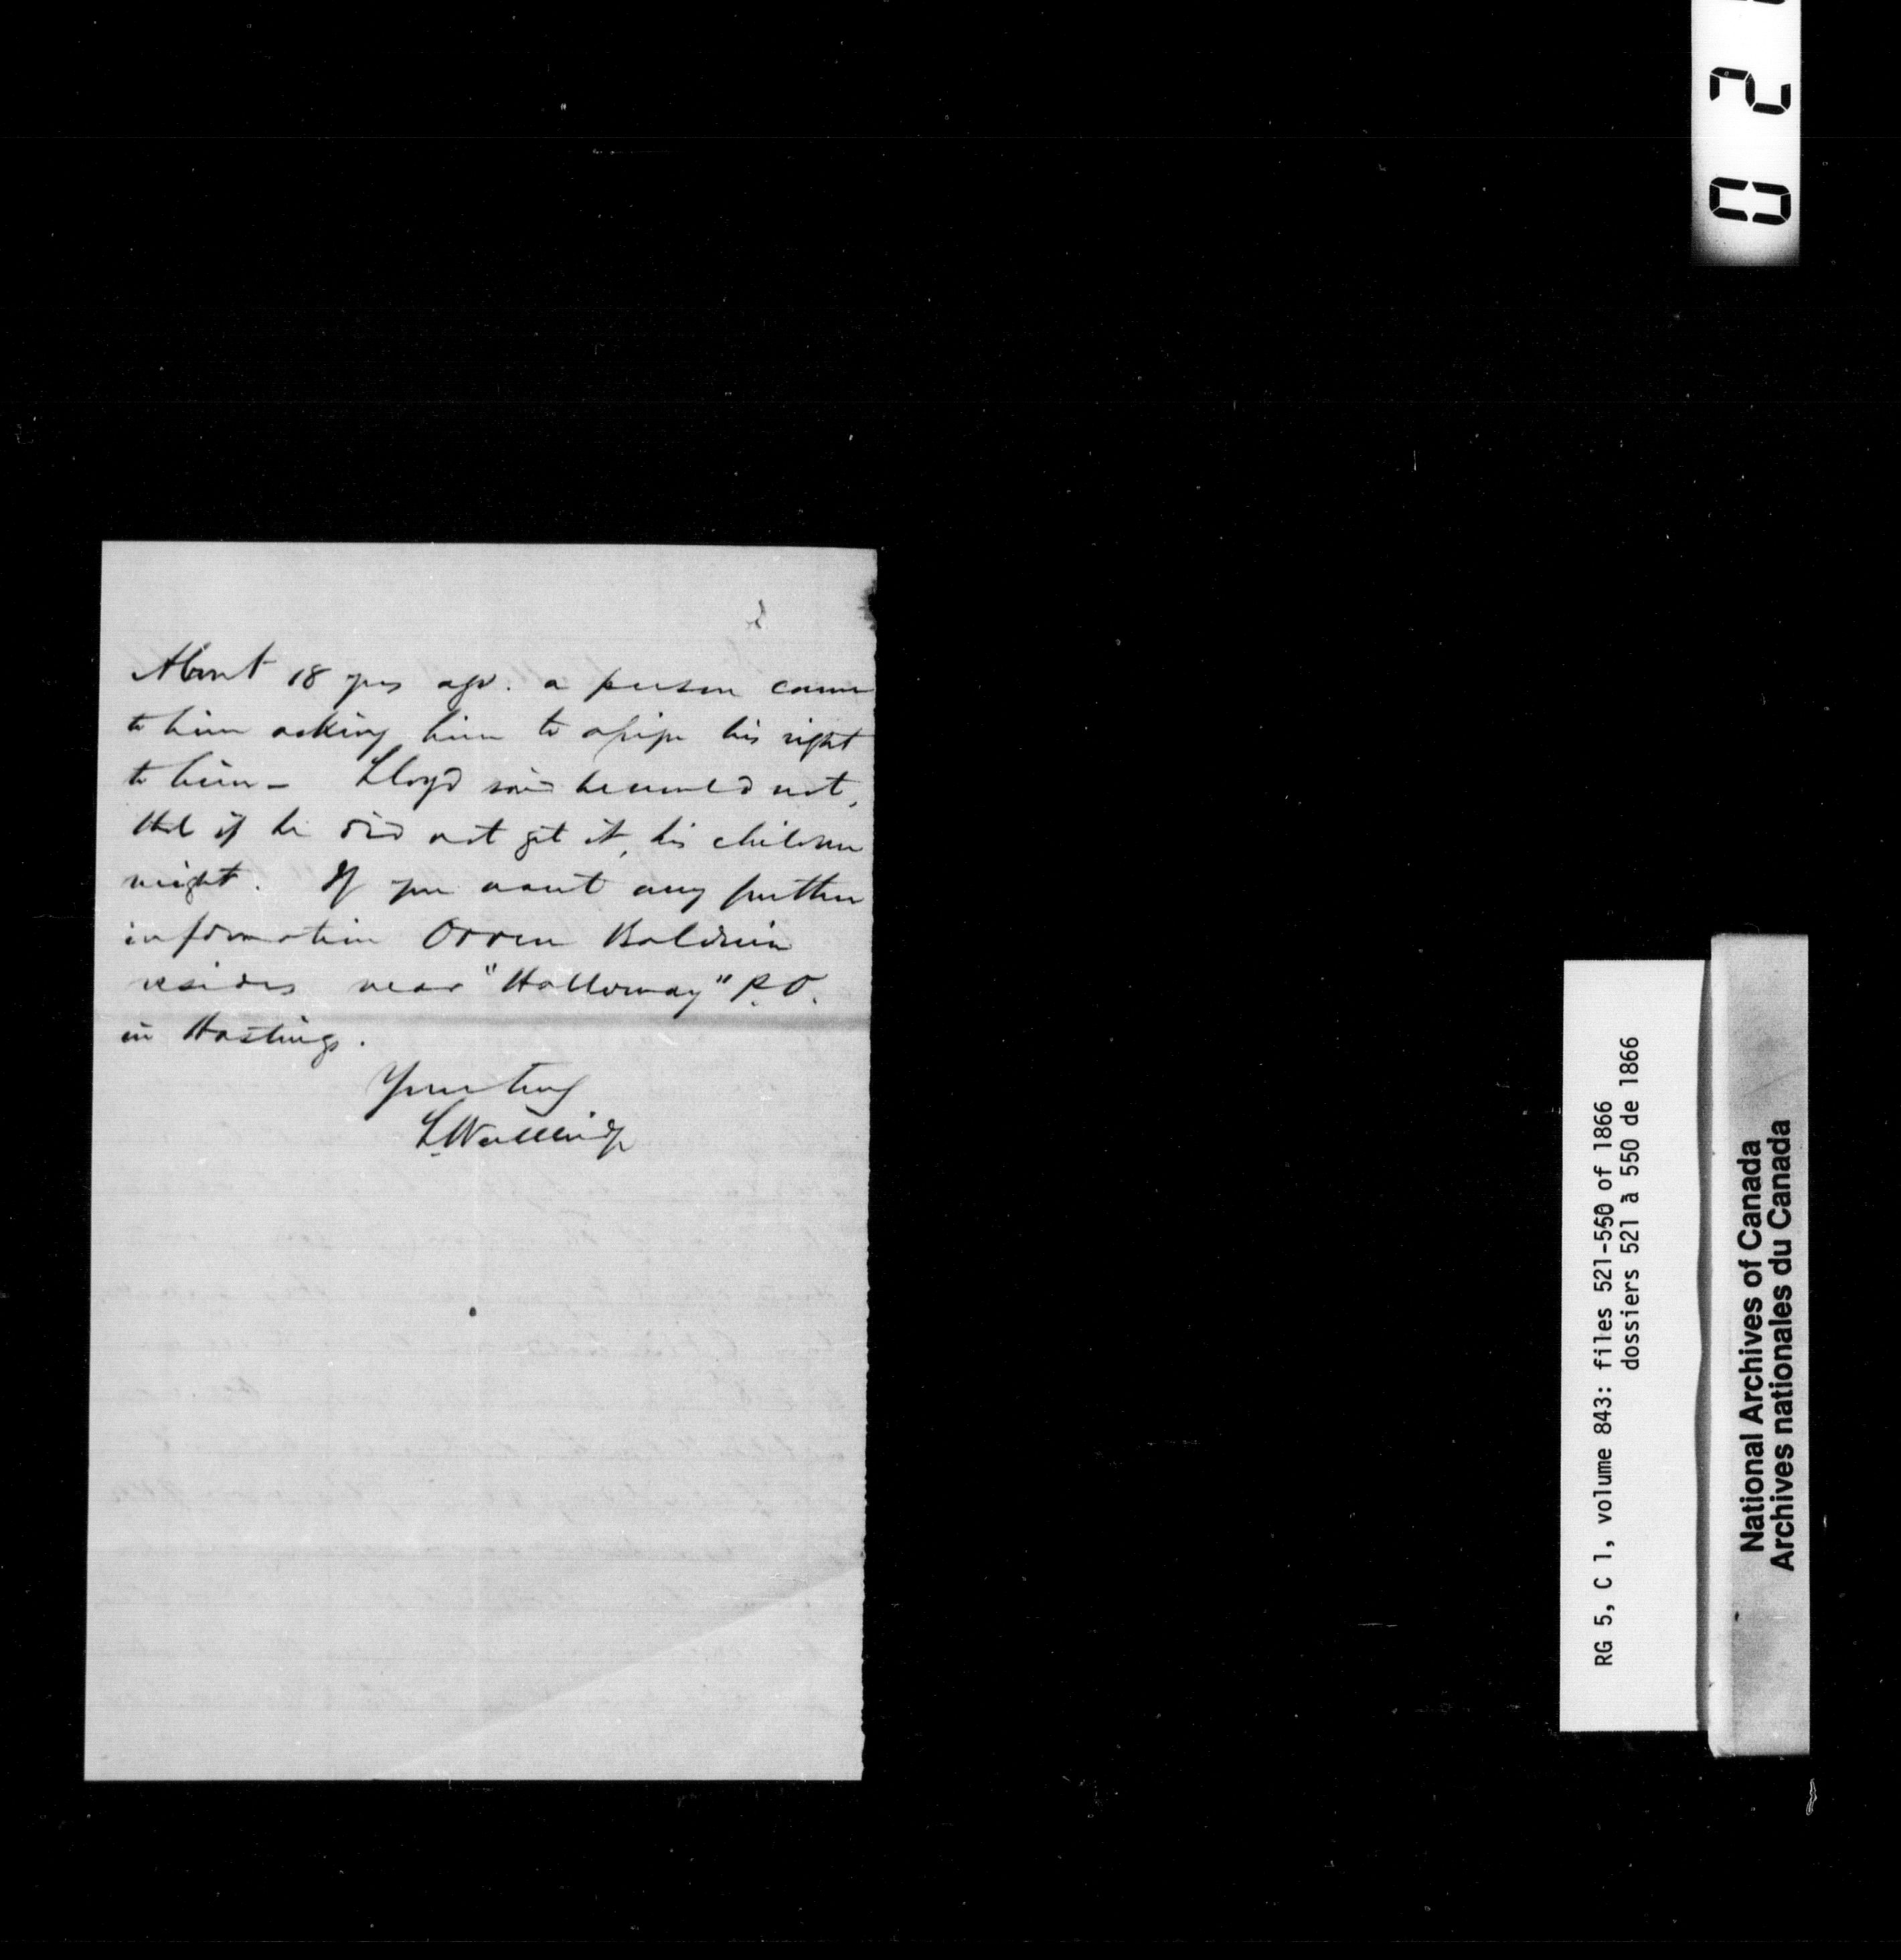 2
About 18 yrs ago. a person came
to him asking him to assign his right
to him – Lloyd said he would not,
that if he did not get it, his children
might. If you want any further
information Orren Baldwin
resides near "Holloway" P.O.
in Hastings.
Yours truly
L Wallbridge
RG 5, C 1, volume 843: files 521-550 of 1866
dossiers 521 à 550 de 1866
National Archives of Canada
Archives nationales du Canada
0 2